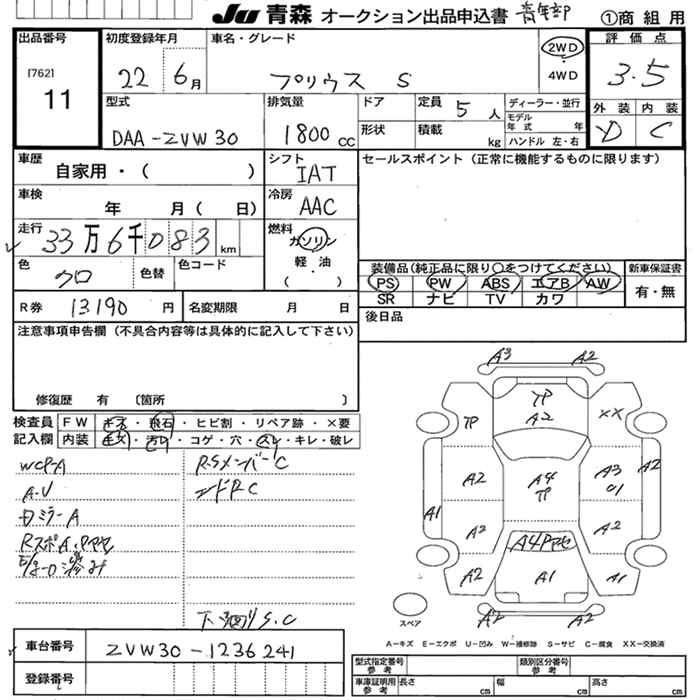 JU 青森 オークション出品申込書 青年部 ①商 組 用
出品番号
[762]
11
初度登録年月
22 年 6 月
車名・グレード
プリウス S
2WD
・
4WD
評 価 点
3.5
外 装 内 装
D C
型式
DAA-ZVW30
排気量
1800 CC
ドア
形状
定員 5 人
積載 kg
ディーラー・並行
モデル年式 年
ハンドル 左・右
車歴
自家用・( )
シフト
IAT
セールスポイント (正常に機能するものに限ります)
車検
年 月 ( 日)
冷房
AAC
走行
33万6千083 km
燃料
ガソリン
軽 油
( ・ )
色
クロ
色替
色コード
装備品(純正品に限り○をつけてください)
PS PW ABS エアB AW
SR ナビ TV カワ
新車保証書
有・無
R券 13190 円
名変期限 月 日
後日品
注意事項申告欄 (不具合内容等は具体的に記入して下さい)
修復歴 有 〔箇所 〕
検査員 FW キズ・飛石・ヒビ割・リペア跡・×要
記入欄 内装 キズ・汚れ・コゲ・穴・スレ・キレ・破レ
A3 A2
YP
A2
YP
XX
A2
A4
YP
A3
A2
A1
A2
A2
A2
A1
A1
A2 A2
RSメンバーC
A・V
エンドPC
下廻りS.C
スペア
A-キズ E-エクボ U-凹み W-補修跡 S-サビ C-腐食 XX-交換済
車台番号 ZVW30-1236241
登録番号
型式指定番号 参考
類別区分番号 参考
車庫証明用 参考 長さ cm 幅 cm 高さ cm